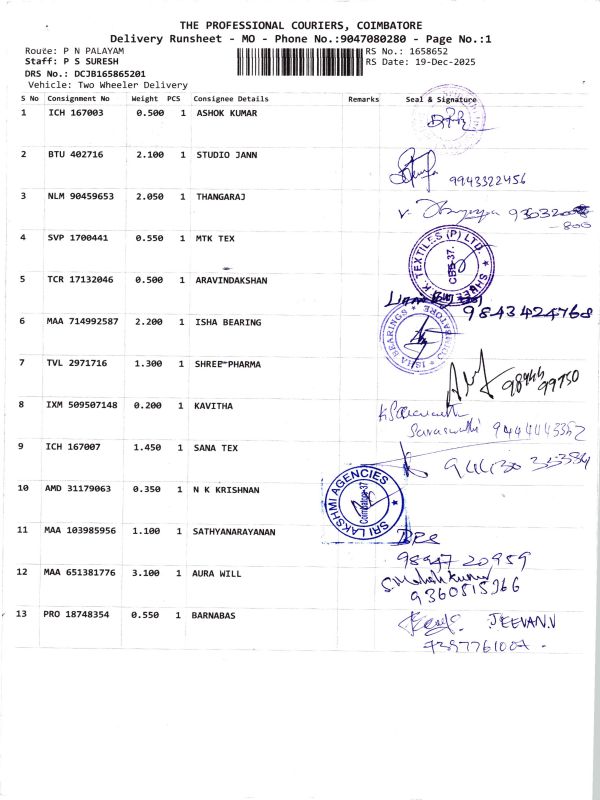 THE PROFESSIONAL COURIERS, COIMBATORE
Delivery Runsheet - MO - Phone No.:9047080280 - Page No.:1
Route: P N PALAYAM RS No.: 1658652
Staff: P S SURESH RS Date: 19-Dec-2025
DRS No.: DCJB165865201
Vehicle: Two Wheeler Delivery
S No Consignment No Weight PCS Consignee Details Remarks Seal & Signature
1 ICH 167003 0.500 1 ASHOK KUMAR
2 BTU 402716 2.100 1 STUDIO JANN
9943322456
3 NLM 90459653 2.050 1 THANGARAJ
4 SVP 1700441 0.550 1 MTK TEX
TEXTILES (P) LTD. ★ SHREE
CBE-37.
5 TCR 17132046 0.500 1 ARAVINDAKSHAN
9843424768
6 MAA 714992587 2.200 1 ISHA BEARING
★ ISHA BEARINGS ★
7 TVL 2971716 1.300 1 SHREE PHARMA
98944 99750
8 IXM 509507148 0.200 1 KAVITHA
Saraswathi 9444443352
9 ICH 167007 1.450 1 SANA TEX
10 AMD 31179063 0.350 1 N K KRISHNAN
★ SRI LAKSHMI AGENCIES ★
Coimbatore-37
11 MAA 103985956 1.100 1 SATHYANARAYANAN
98947 20959
12 MAA 651381776 3.100 1 AURA WILL
S. Mahesh kumar
9360515266
13 PRO 18748354 0.550 1 BARNABAS
JEEVAN.V